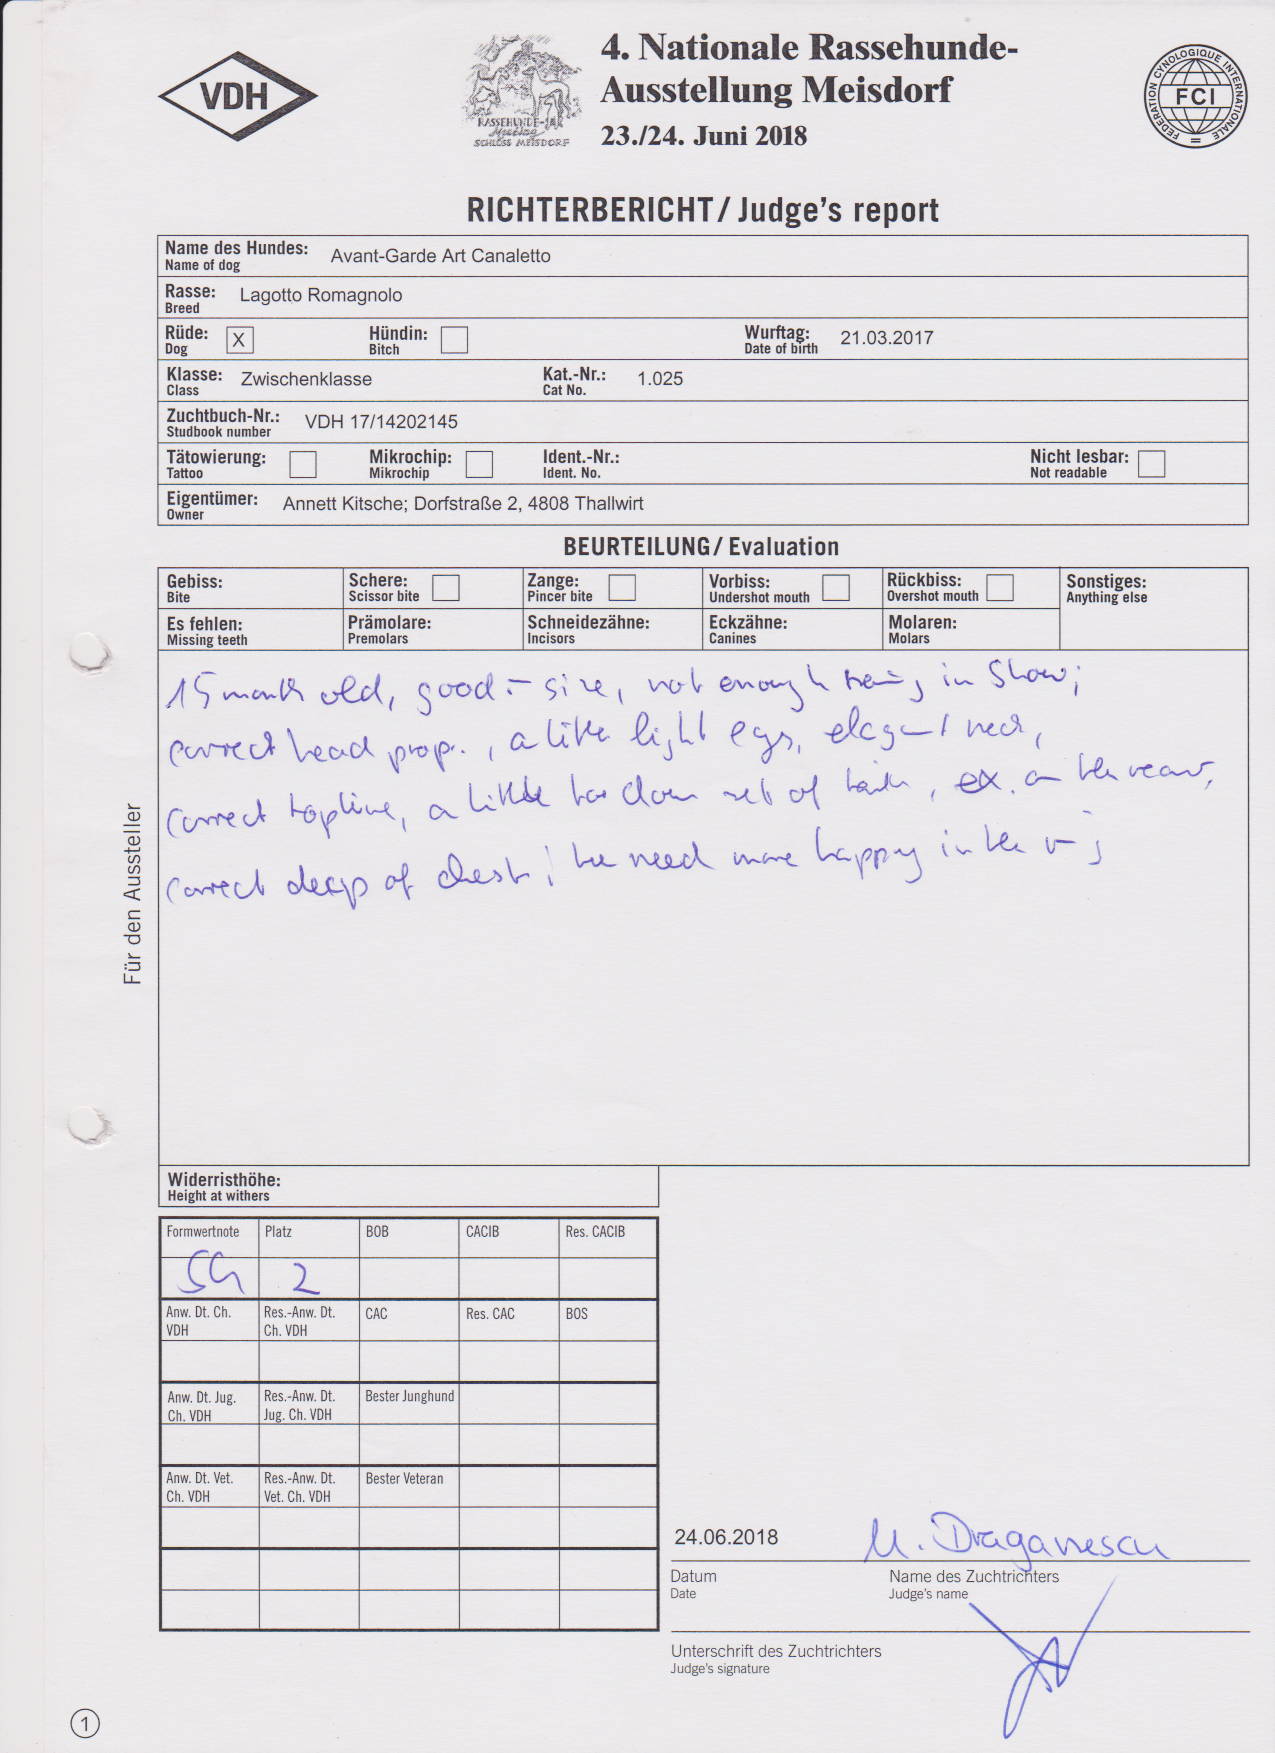 VDH
RASSEHUNDE-
Meeting
SCHLOSS MEISDORF
4. Nationale Rassehunde-
Ausstellung Meisdorf
23./24. Juni 2018
FEDERATION CYNOLOGIQUE INTERNATIONALE
FCI
RICHTERBERICHT/ Judge's report
Name des Hundes: Avant-Garde Art Canaletto
Name of dog
Rasse: Lagotto Romagnolo
Breed
Rüde: X Hündin: Wurftag: 21.03.2017
Dog Bitch Date of birth
Klasse: Zwischenklasse Kat.-Nr.: 1.025
Class Cat No.
Zuchtbuch-Nr.: VDH 17/14202145
Studbook number
Tätowierung: Mikrochip: Ident.-Nr.: Nicht lesbar:
Tattoo Mikrochip Ident. No. Not readable
Eigentümer: Annett Kitsche; Dorfstraße 2, 4808 Thallwirt
Owner
BEURTEILUNG/ Evaluation
Gebiss: Schere: Zange: Vorbiss: Rückbiss: Sonstiges:
Bite Scissor bite Pincer bite Undershot mouth Overshot mouth Anything else
Es fehlen: Prämolare: Schneidezähne: Eckzähne: Molaren:
Missing teeth Premolars Incisors Canines Molars
15 month old, good size, not enough in Show;
correct head prop., a little light eys, elegant neck,
correct topline, a little too down set of tail, ex. on the rear,
correct deep of chest; he need more happy in the
Für den Aussteller
Widerristhöhe:
Height at withers
Formwertnote Platz BOB CACIB Res. CACIB
SG 2
Anw. Dt. Ch. VDH Res.-Anw. Dt. Ch. VDH CAC Res. CAC BOS
Anw. Dt. Jug. Ch. VDH Res.-Anw. Dt. Jug. Ch. VDH Bester Junghund
Anw. Dt. Vet. Ch. VDH Res.-Anw. Dt. Vet. Ch. VDH Bester Veteran
24.06.2018 M. Draganescu
Datum Name des Zuchtrichters
Date Judge's name
Unterschrift des Zuchtrichters
Judge's signature
1